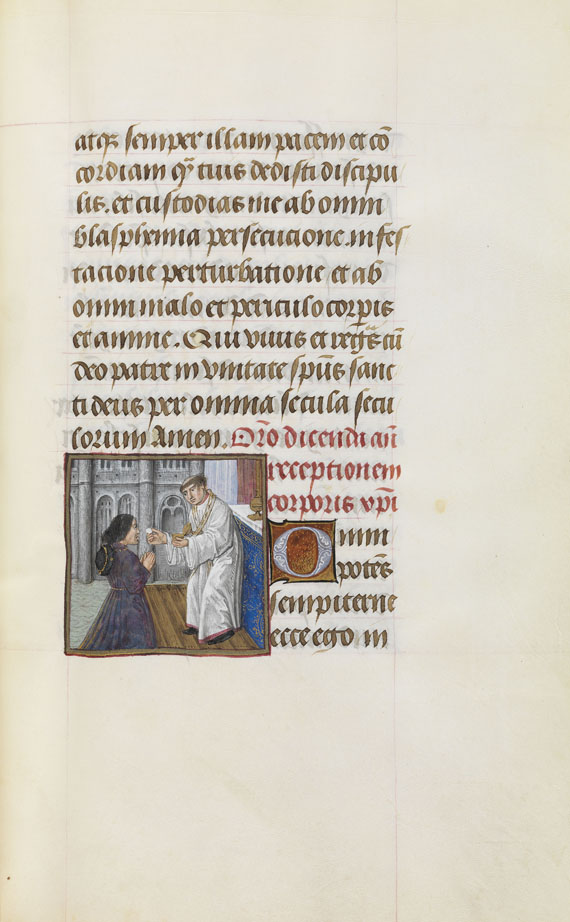 atqꝫ semper illam pacem et cō
cordiam qͣ tuis dedisti discipu
lis. et custodias me ab omni
blasphemia persecucione. infes
tacione perturbatione et ab
omni malo et periculo corpis
et anime. Qui viuis et regͣs cū
deo patre in vnitate spūs sanc
ti deus per omnia secula secu
lorum Amen. Orō dicendi an̄
recceptionem
corporis xp̄i
Omni
potēs
sempiterne
ecce ego in